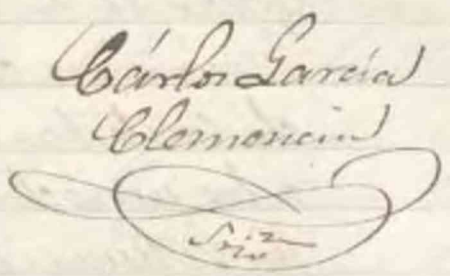 Cárlos García
Clemencin
Srio